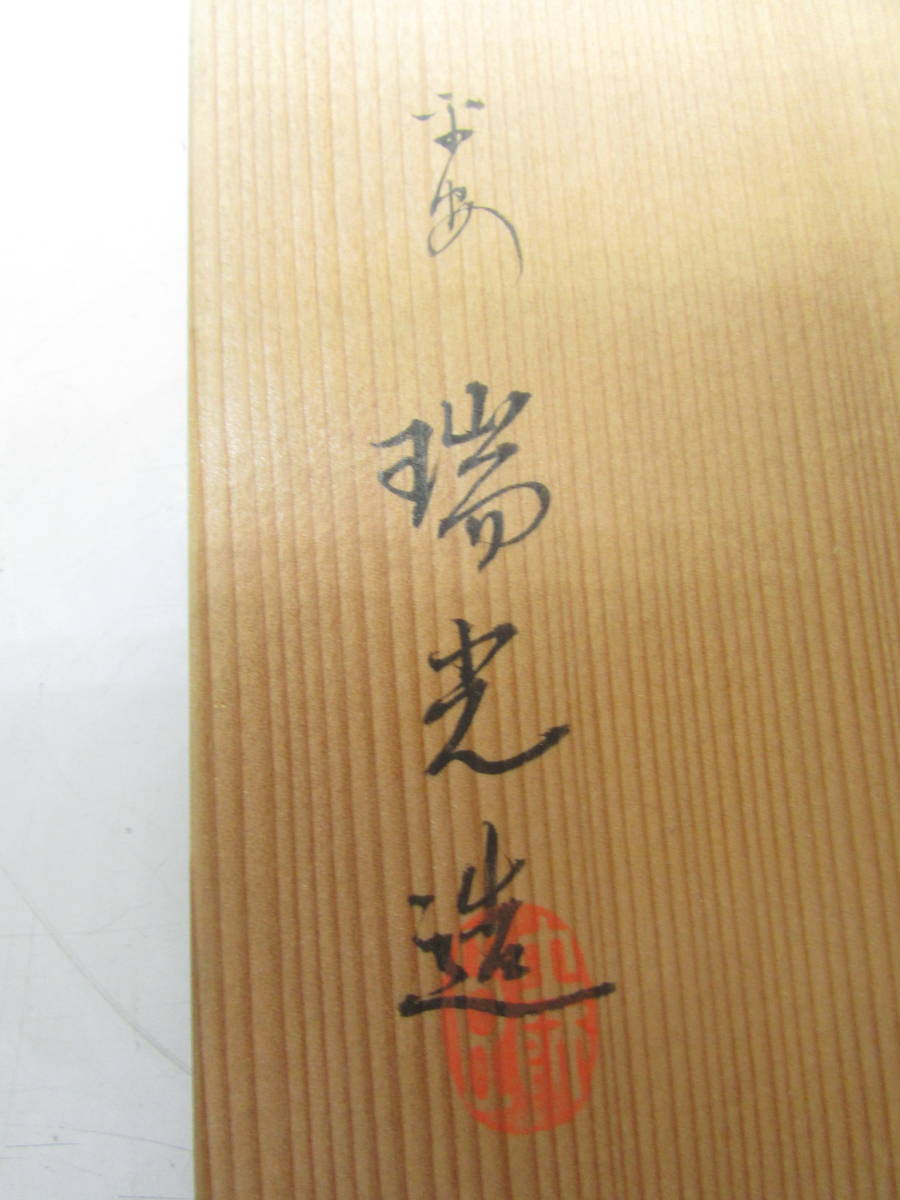 平安
瑞光造